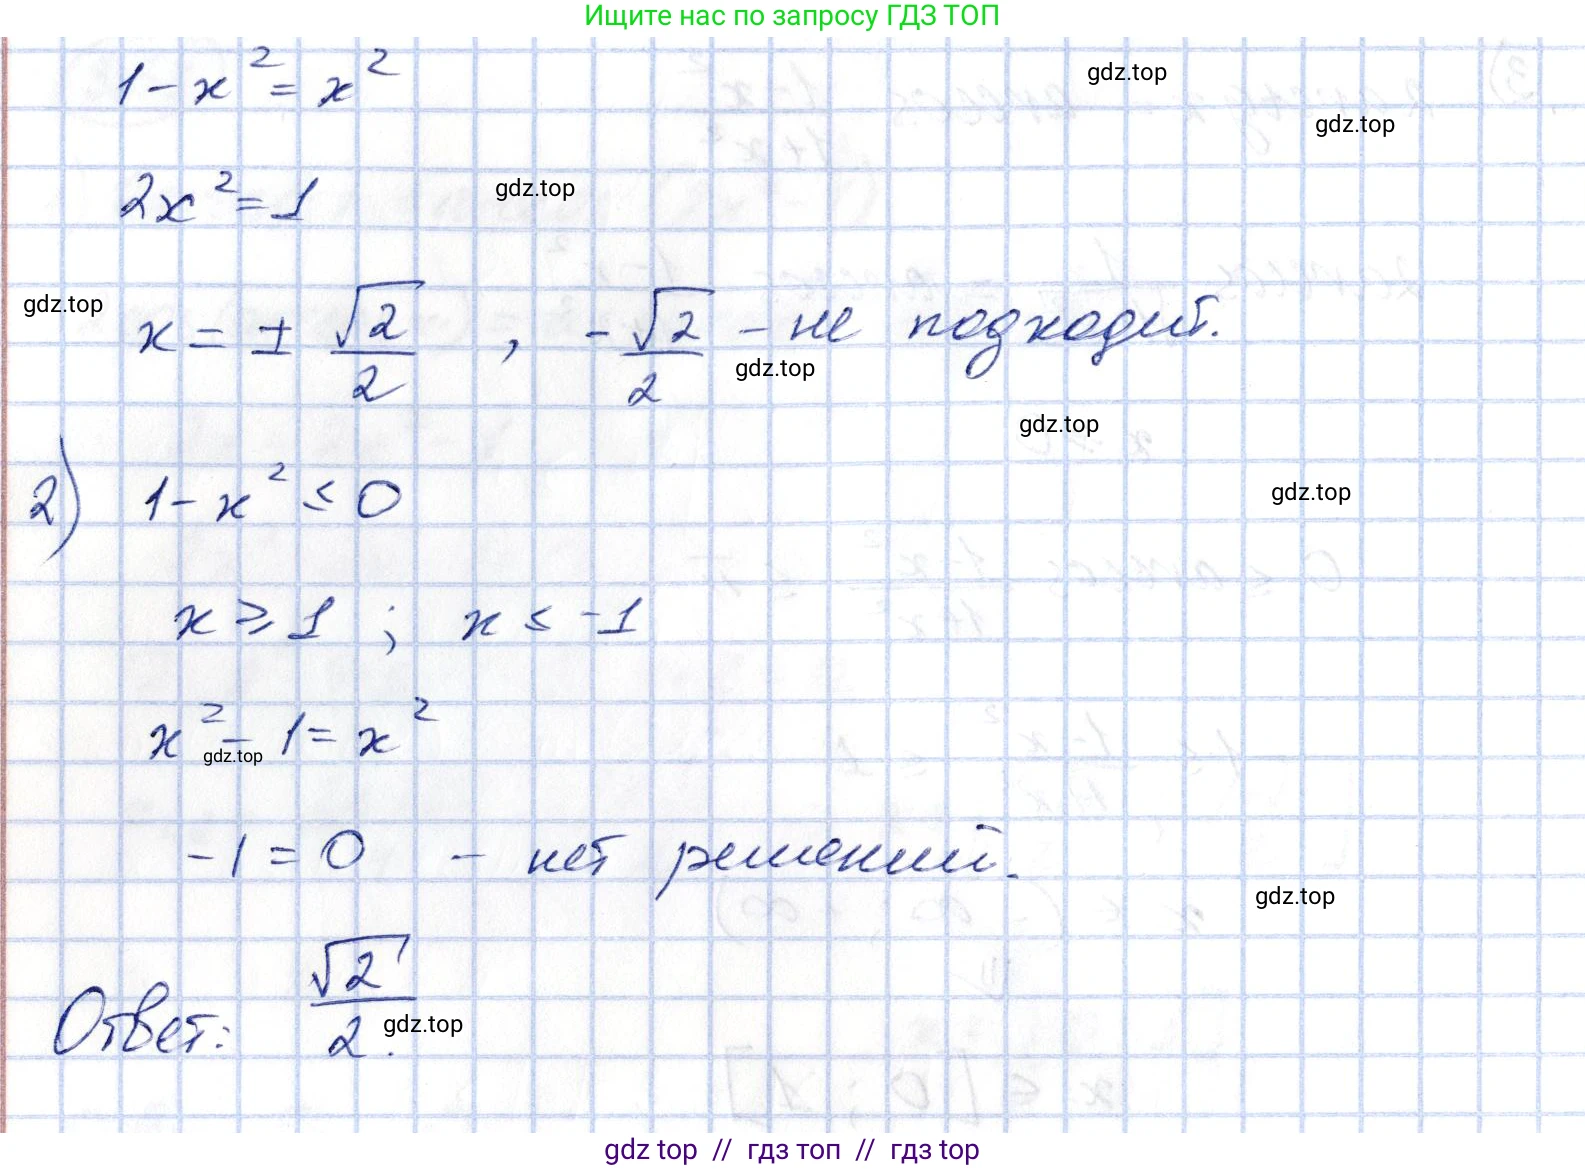 Ищите нас по запросу ГДЗ ТОП
1 - x² = x²
gdz.top
gdz.top
2x² = 1
gdz.top
gdz.top
x = ± √2/2 , -√2/2 - не подходит.
gdz.top
gdz.top
2) 1 - x² ≤ 0
gdz.top
x ≥ 1 ; x ≤ -1
x² - 1 = x²
gdz.top
-1 = 0 - нет решений.
gdz.top
Ответ: √2/2.
gdz.top
gdz top // гдз топ // gdz top